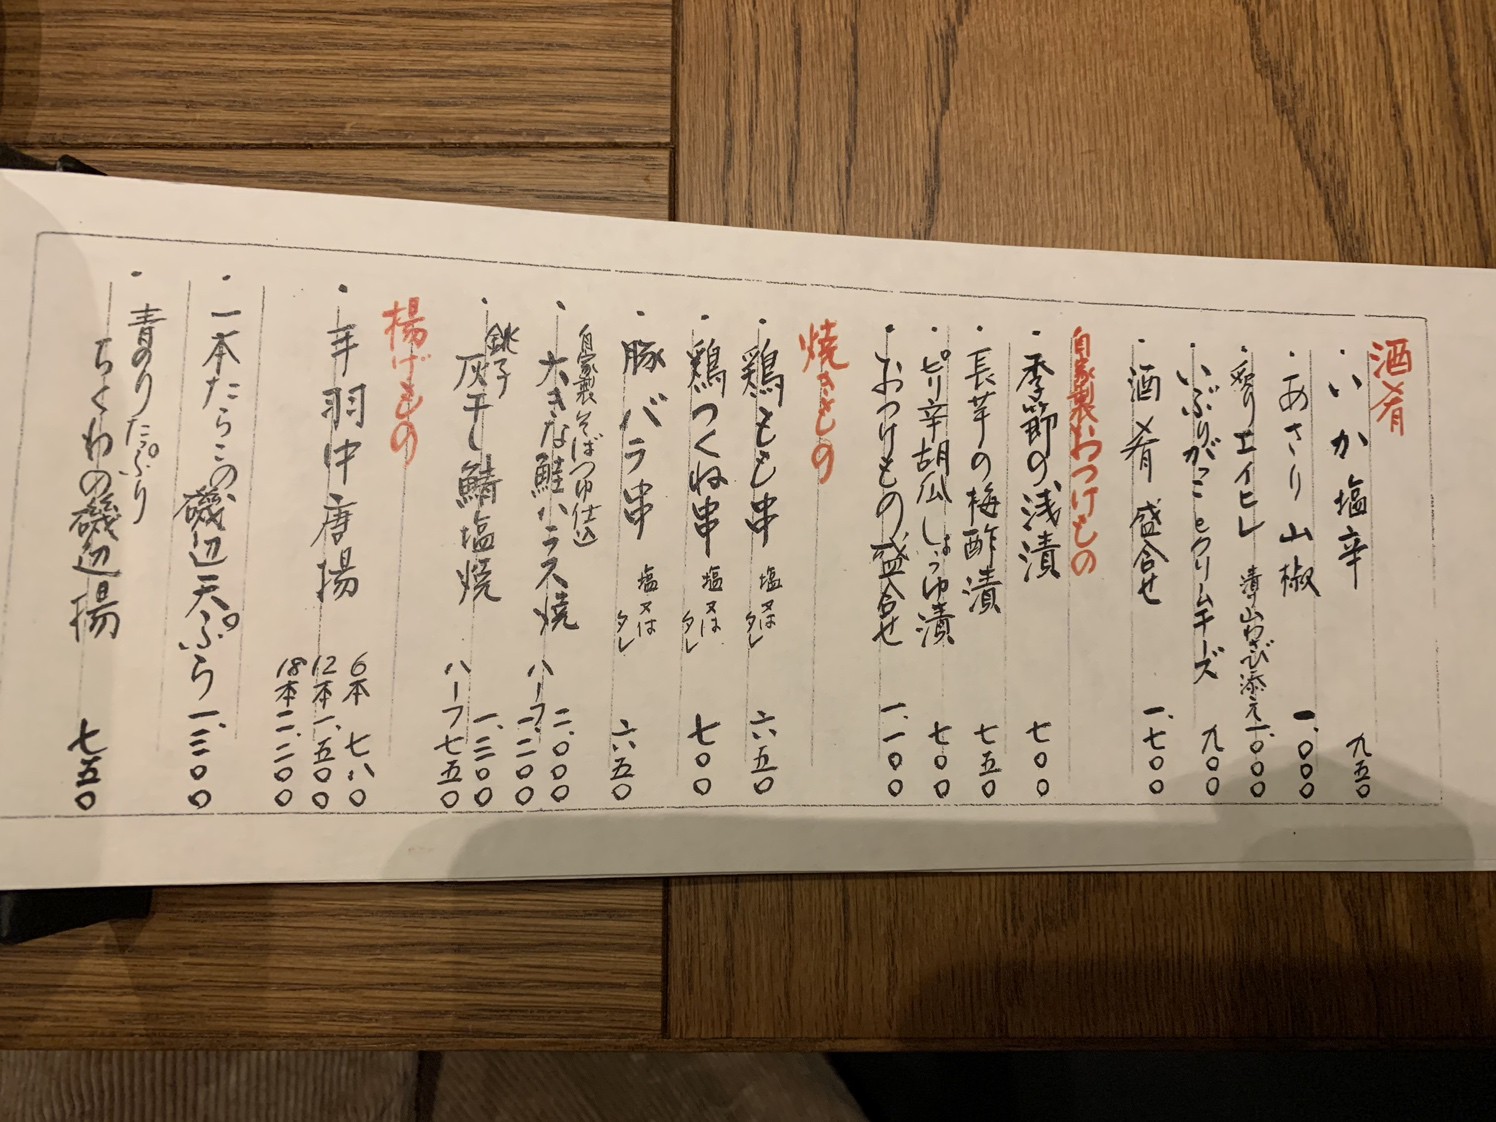 酒肴
・いか塩辛 九五〇
・あさり山椒 一、〇〇〇
・炙りエイヒレ 漬山わさび添え 一、〇〇〇
・いぶりがっことクリームチーズ 九〇〇
・酒肴盛合せ 一、七〇〇
自家製おつけもの
・季節の浅漬 七〇〇
・長芋の梅酢漬 七五〇
・ピリ辛胡瓜しょうゆ漬 七〇〇
・おつけもの盛合せ 一、一〇〇
焼きもの
・鶏もも串 塩又はタレ 六五〇
・鶏つくね串 塩又はタレ 七〇〇
・豚バラ串 塩又はタレ 六五〇
自家製そばつゆ仕込
・大きな鮭ハラス焼 二、〇〇〇
ハーフ 一、二〇〇
・銚子
灰干し鯖塩焼 一、三〇〇
ハーフ 七五〇
揚げもの
・手羽中唐揚 6本 七八〇
12本 一、五〇〇
18本 二、二〇〇
・一本たらこの磯辺天ぷら 一、三〇〇
・青のりたっぷり
ちくわの磯辺揚 七五〇